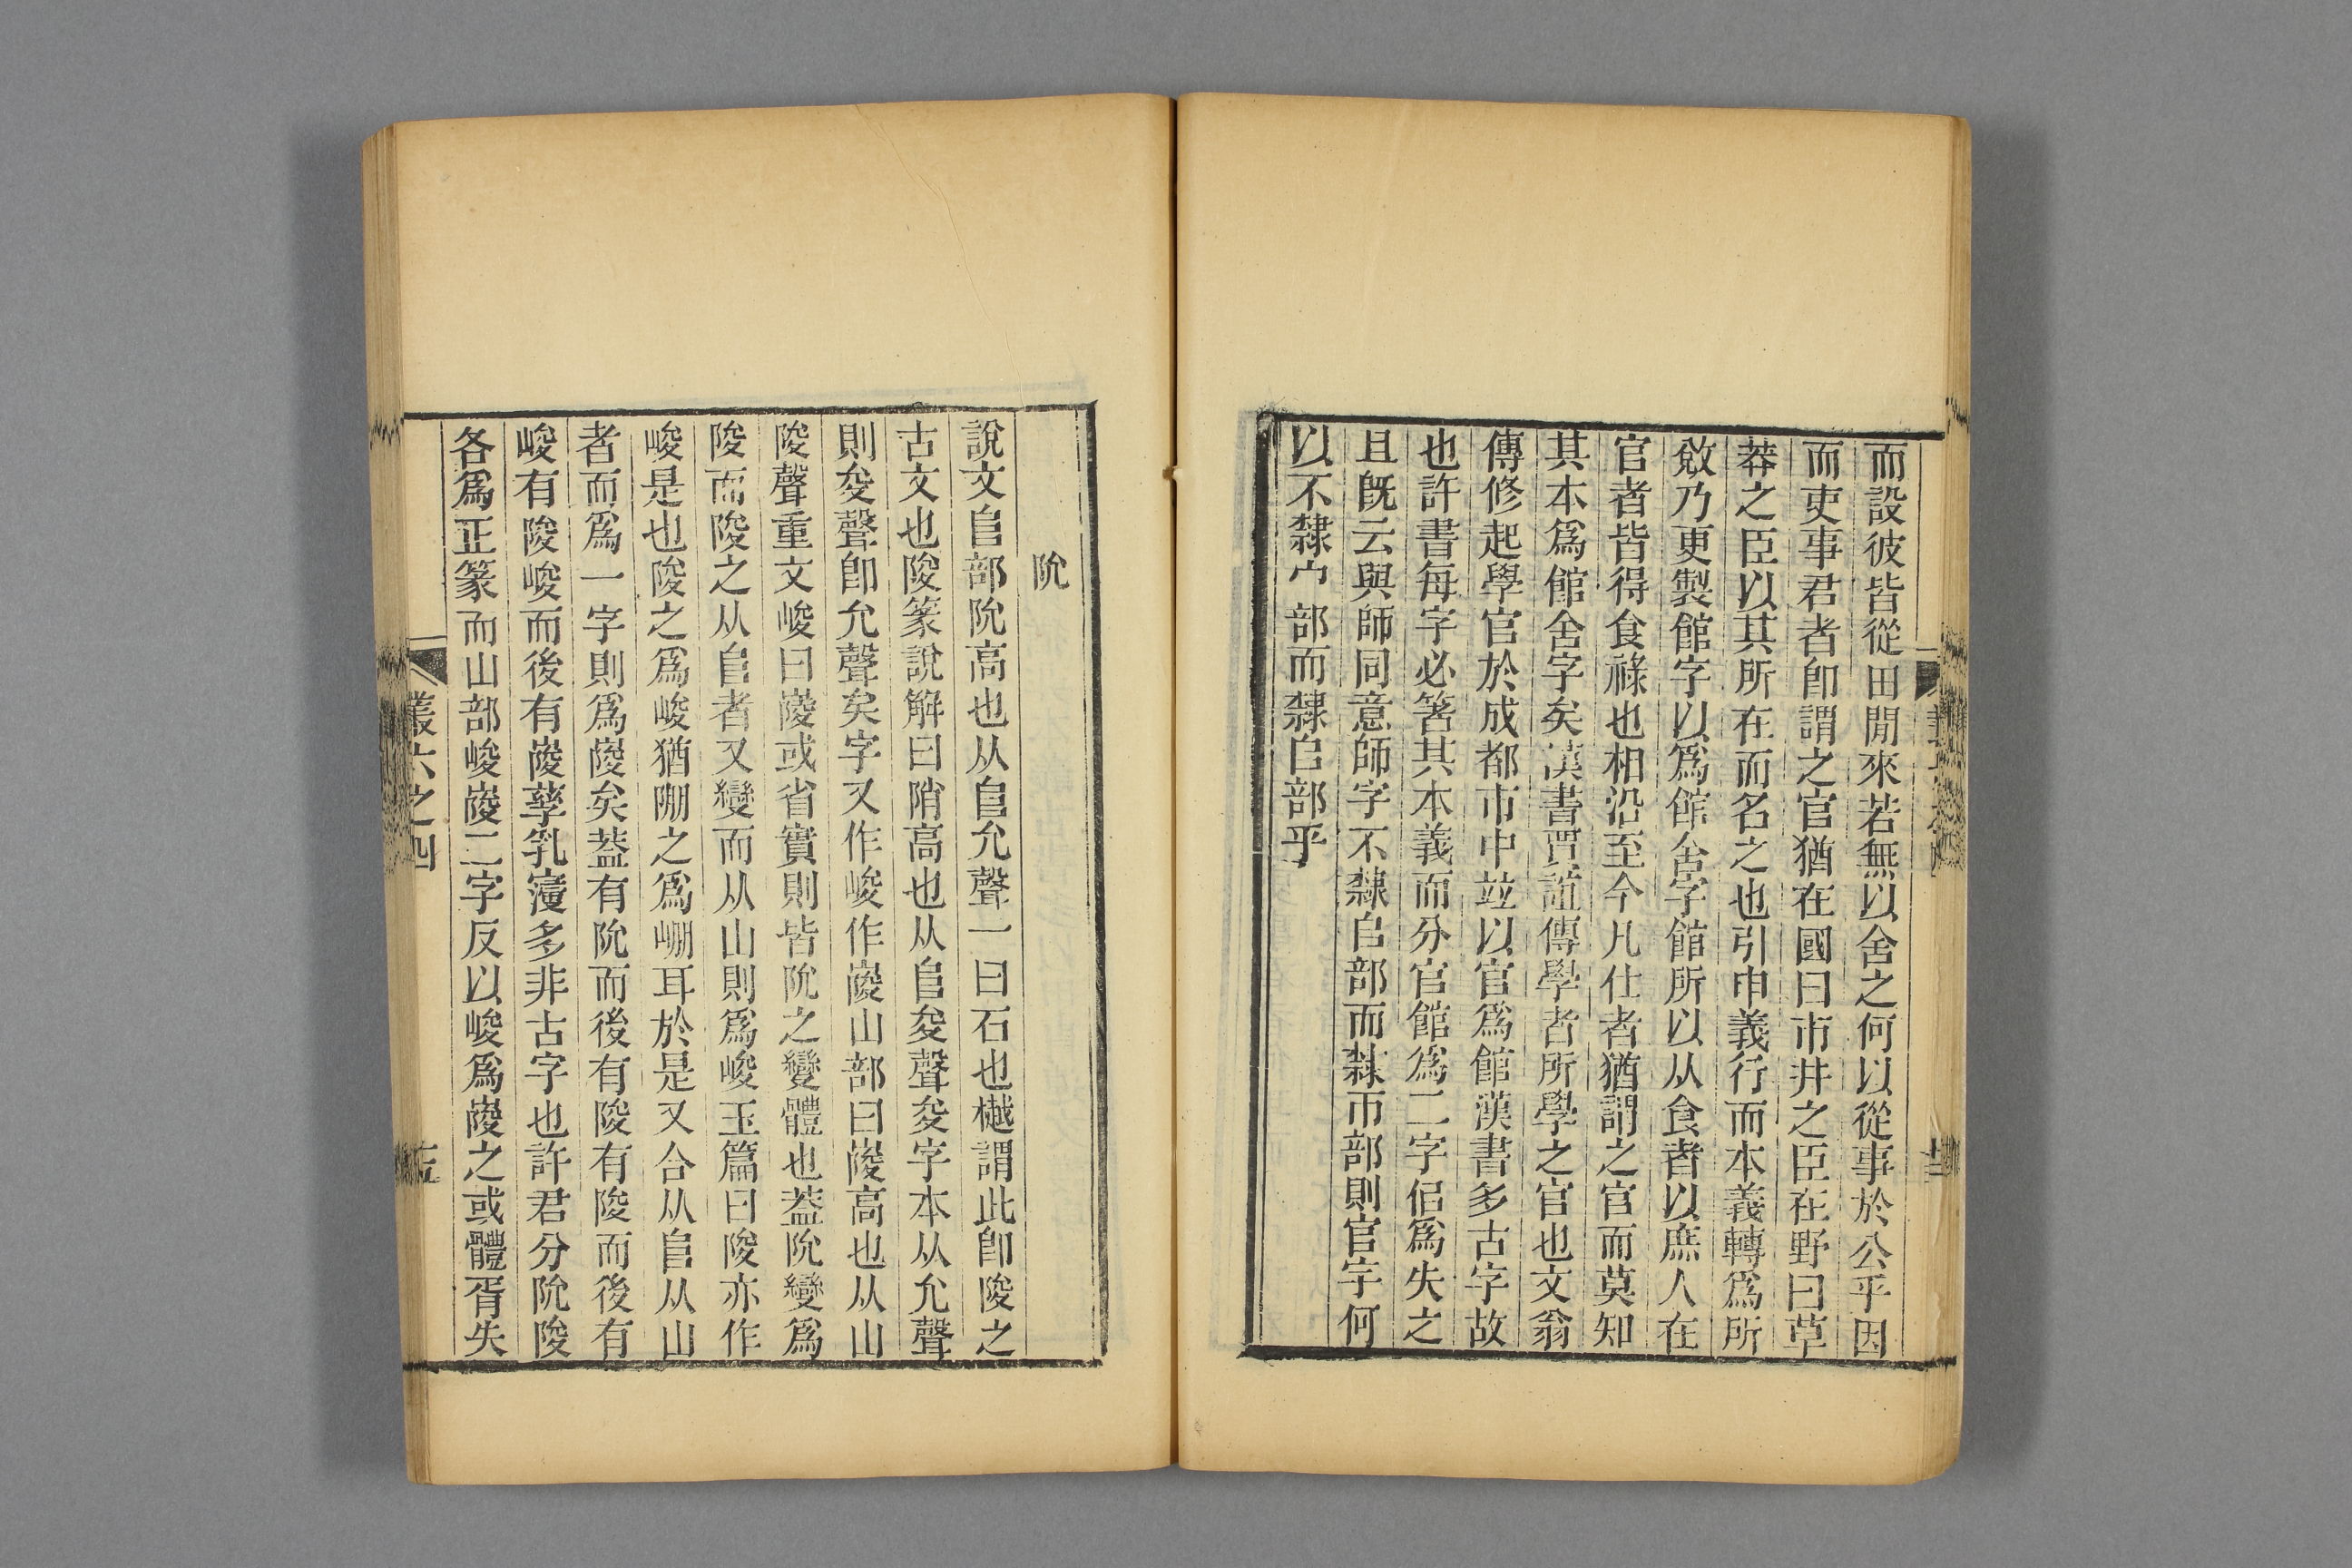 而設彼皆從田閒來若無以舍之何以從事於公乎因
而吏事君者卽謂之官猶在國曰市井之臣在野曰草
莽之臣以其所在而名之也引申義行而本義轉爲所
敓乃更製館字以爲館舍字館所以从食者以庶人在
官者皆得食祿也相沿至今凡仕者猶謂之官而莫知
其本爲館舍字矣漢書賈誼傳學者所學之官也文翁
傳修起學官於成都市中竝以官爲館漢書多古字故
也許書每字必箸其本義而分官館爲二字侣爲失之
且旣云與師同意師字不隸𠂤部而隸帀部則官字何
以不隸宀部而隸𠂤部乎
阭
說文𨸏部阭高也从𨸏允聲一曰石也樾謂此卽陖之
古文也陖篆說解曰陗高也从𨸏夋聲夋字本从允聲
則夋聲卽允聲矣字又作峻作嶐山部曰嶐高也从山
陖聲重文峻曰嶐或省實則皆阭之變體也葢阭變爲
陖而陖之从𨸏者又變而从山則爲峻玉篇曰陖亦作
峻是也陖之爲峻猶堋之爲崩耳於是又合从𨸏从山
者而爲一字則爲嶐矣葢有阭而後有陖有陖而後有
峻有陖峻而後有嶐孳乳寖多非古字也許君分阭陖
各爲正篆而山部峻嶐二字反以峻爲嶐之或體胥失
叢六之四